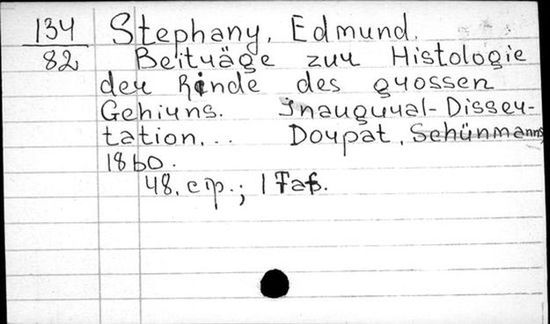 134 Stephany, Edmund.
82 Beiträge zur Histologie
der Rinde des grossen
Gehirns. Inaugural-Disser-
tation... Dorpat, Schünmanns
1860.
48. cтр.; 1 Taf.